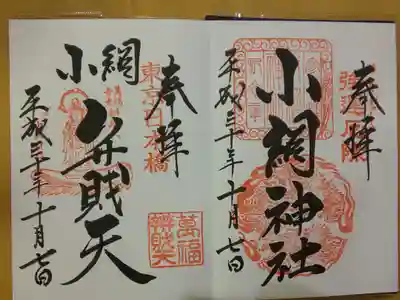 奉拝
強運厄除
小網神社
平成三十年十月七日
奉拝
東京日本橋
小網
弁財天
萬福
辨財天
平成三十年十月七日